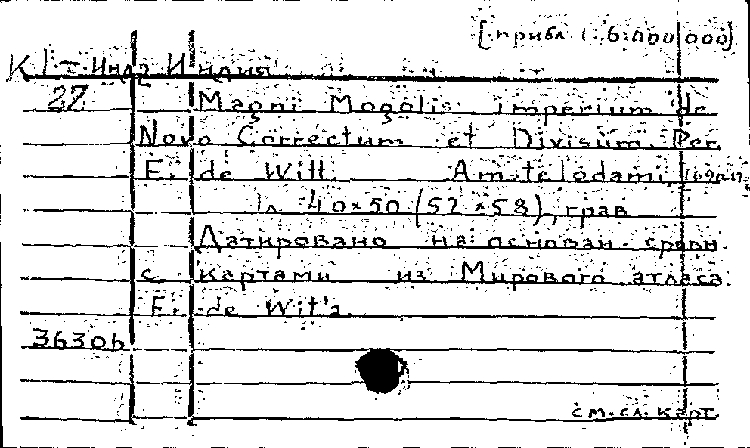 [прибл 1:6.000 000]
К I-Инд2 Индия
27 Magni Mogolis imperium de
Novo Correctum et Divisum Per
F. de Witt. Amsteledami,
1л 40×50 (52×58), грав
Датировано на основан. сравн.
с картами из Мирового атласа
F. de Wit'a.
3630b
см. сл. карт.